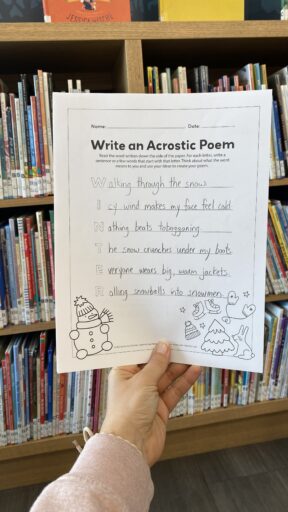 JESSICA
Name: Date:
Write an Acrostic Poem
Read the word written down the side of the paper. For each letter, write a
sentence to a few words that start with that letter. Think about what the word
means to you and use your ideas to create your poem.
Walking through the snow
Icy wind makes my face feel cold.
Nothing beats tobogganing
The snow crunches under my boots.
Everyone wears big, warm jackets.
Rolling snowballs into snowmen.